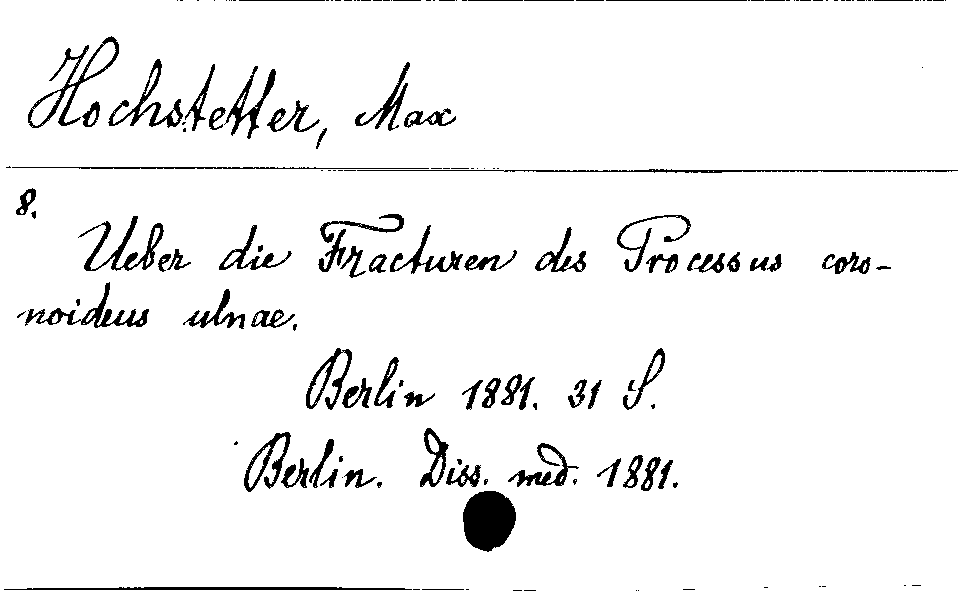 Hochstetter, Max
8.
Ueber die Fracturen des Processus coro-
noideus ulnae.
Berlin 1881. 31 S.
Berlin. Diss. med. 1881.